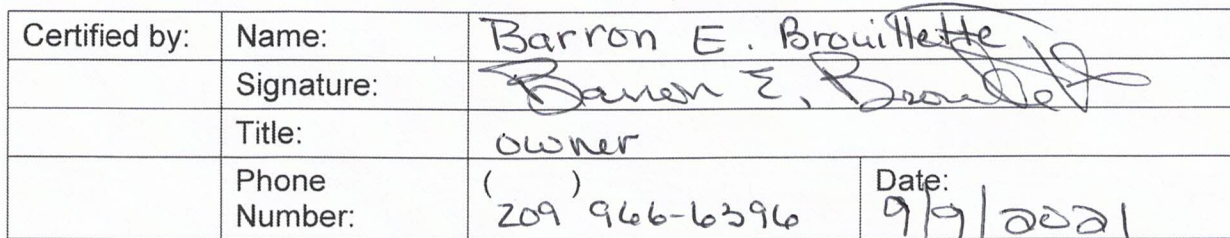 Certified by: Name: Barron E. Brouillette
Signature: Barron E. Brouillette
Title: owner
Phone Number: (209) 966-6396 Date: 9/9/2021